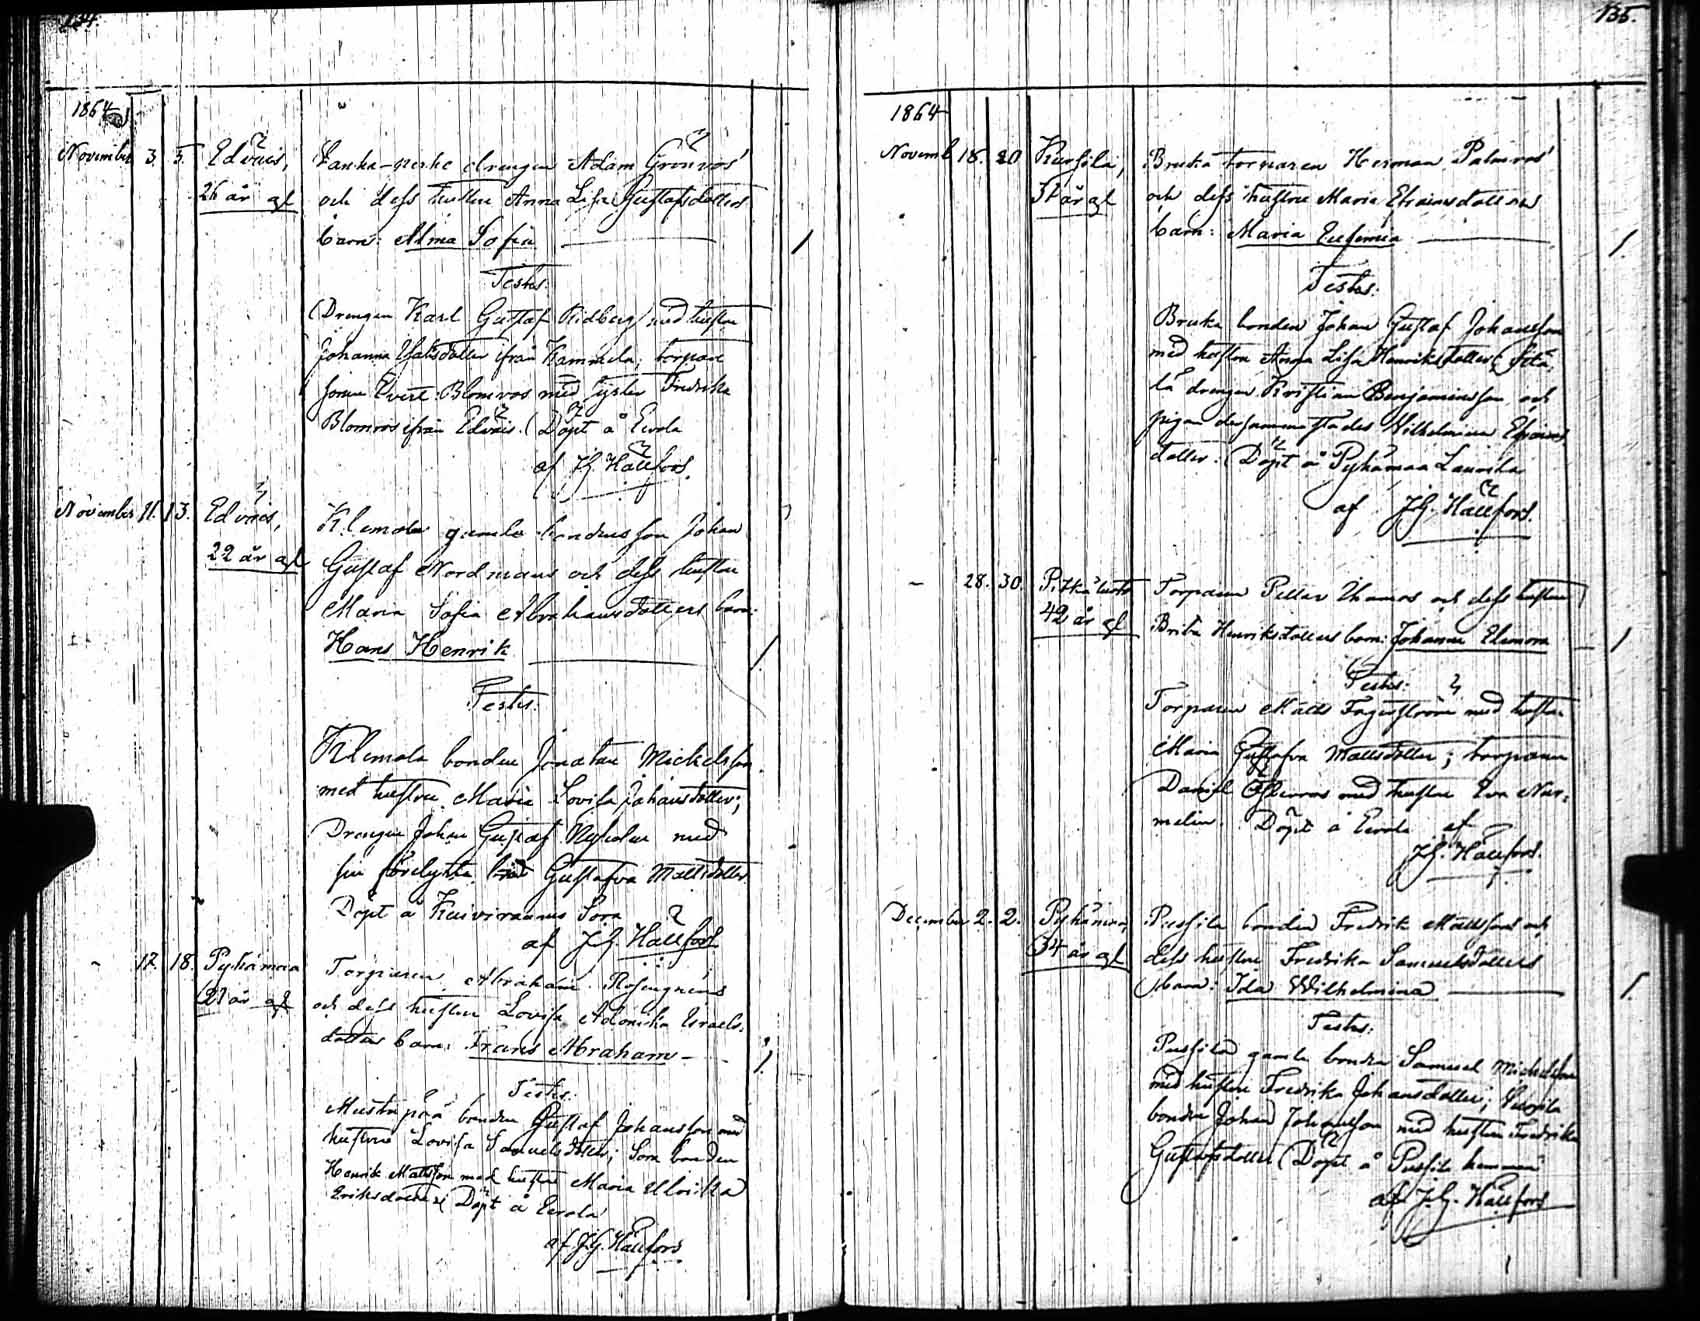 134.
1864
November 3. 5. Edvais, Lanka-perhe drengen Adam Grönroos'
26 år gl och dess hustru Anna Lisa Gustafsdotters
barn: Alma Sofia
Testes:
Drengen Karl Gustaf Ridberg med hustru
Johanna dotter ifrån Kammela; torpare
sonen Evert Blomroos med syster Fredrika
Blomroos ifrån Edvais. Döpt å Evola
af J.G. Hallfors.
November 11. 13. Edvais, Klemola gamla bondens son Johan
22 år gl Gustaf Nordmans och dess hustru
Maria Sofia Abrahamsdotters barn:
Hans Henrik
Testes:
Klemola bonden Jonatan Michelsson
med hustru Maria Lovisa Johansdotter;
Drengen Johan Gustaf med
sin förelyste brud Gustafva Mattsdotter.
Döpt å Kuivirauma Sora
af J.G. Hallfors
- 17. 18. Pyhämaa Torparen Abraham Rosengrens
21 år gl och dess hustru Lovisa Adamika Israels-
dotters barn: Frans Abraham
Testes:
bonden Gustaf Johansson med
hustru Lovisa Samuelsdotter; Sora bonden
Henrik Mattsson med hustru Maria Ulrika
Eriksdotter. Döpt å Eevola
af J.G. Hallfors
135.
1864
Novemb 18. 20 Kursila, Bruka torparen Herman Palmroos'
år gl och dess hustru Maria Efraimsdotters
barn: Maria Eufemia
Testes:
Bruka bonden Johan Gustaf Johansson
med hustru Anna Lisa Henriksdotter;
drengen Kristian Benjaminsson och
pigan dersammastädes Wilhelmina Efraims
dotter. Döpt å Pyhämaa Laurila
af J.G. Hallfors.
- 28. 30. Torparen Petter och dess hustru
42 år gl Brita Henriksdotters barn: Johanna Elenora
Testes:
Torparen Matts Fagerström med hustru
Maria Gustafva Mattsdotter; torparen
Daniel med hustru Eva Nur-
melin. Döpt å Eevola af
J.G. Hallfors.
December 2. 2. Pyhämaa, Pussila bonden Fredrik Mattssons och
34 år gl dess hustru Fredrika Samuelsdotters
barn: Ida Wilhelmina
Testes:
Pussila gamla bonden Samuel Michelsson
med hustru Fredrika Johansdotter;
bonden Johan Johansson med hustru Fredrika
Gustafsdotter. Döpt å Pussila hemman
af J.G. Hallfors